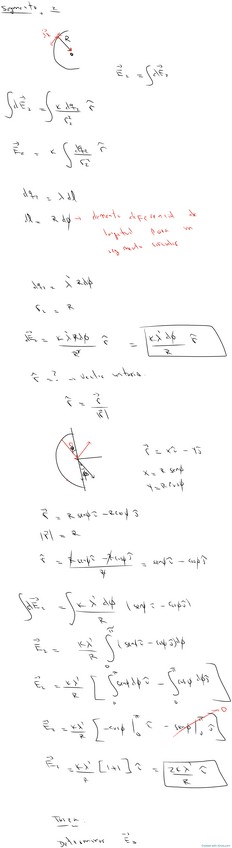 Segmento 2
dl
R
E⃗₂ = ∫dE⃗₂
∫dE⃗₂ = ∫ K dq₂ / r₂² r̂
E⃗₂ = K ∫ dq₂ / r₂² r̂
dq₂ = λ dl
dl = R dϕ → elemento diferencial de
longitud para un
segmento circular
dq₂ = λ' R dϕ
r₂ = R
dE⃗₂ = K λ' R dϕ / R² r̂ = K λ' dϕ / R r̂
r̂ = ? → vector unitario.
r̂ = r⃗ / |r⃗|
r⃗ = xî - yĵ
x = R senϕ
y = R cosϕ
r⃗ = R senϕ î - R cosϕ ĵ
|r⃗| = R
r̂ = R senϕ î - R cosϕ ĵ / R = senϕ î - cosϕ ĵ
∫dE⃗₂ = ∫ K λ' dϕ / R (senϕ î - cosϕ ĵ)
E⃗₂ = K λ' / R ∫₀^π (senϕ î - cosϕ ĵ) dϕ
E⃗₂ = K λ' / R [ ∫₀^π senϕ dϕ î - ∫₀^π cosϕ dϕ ĵ ]
E⃗₂ = K λ' / R [ -cosϕ |₀^π î - senϕ |₀^π ĵ ] → 0
E⃗₂ = K λ' / R [1+1] î = 2K λ' / R î
Tarea:
E⃗₃